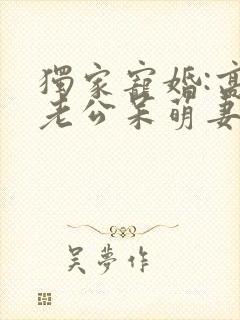 獨家寵婚:高
老公呆萌妻
吴夢作